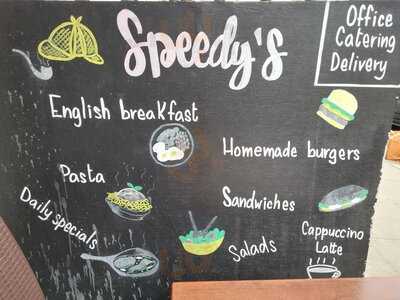 Speedy's
Office
Catering
Delivery
English breakfast
Homemade burgers
Pasta
Sandwiches
Daily specials
Salads
Cappuccino
Latte